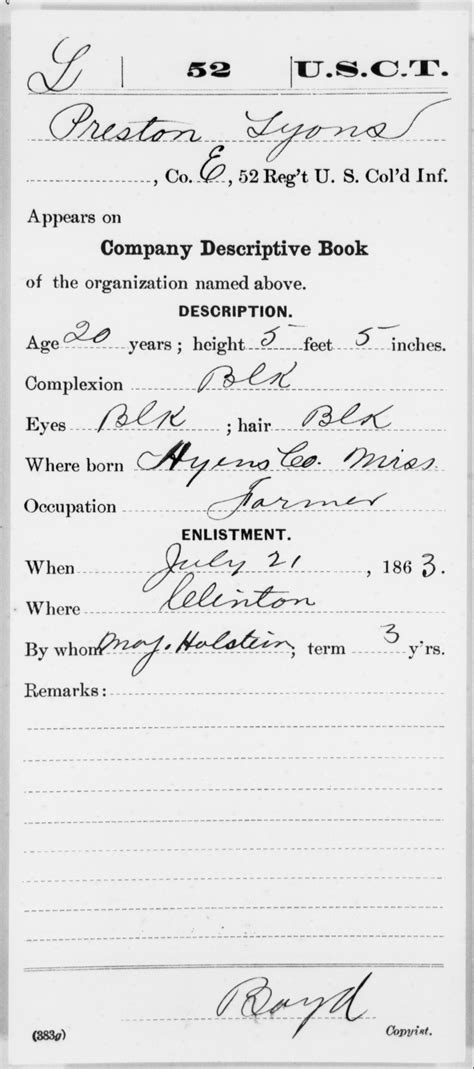 L | 52 | U.S.C.T.
Preston Lyons
, Co. E, 52 Reg't U. S. Col'd Inf.
Appears on
Company Descriptive Book
of the organization named above.
DESCRIPTION.
Age 20 years; height 5 feet 5 inches.
Complexion Blk
Eyes Blk ; hair Blk
Where born Hyens Co. Miss
Occupation Farmer
ENLISTMENT.
When July 21 , 1863.
Where Clinton
By whom Maj. Holstein; term 3 y'rs.
Remarks:
Boyd
(383g) Copyist.